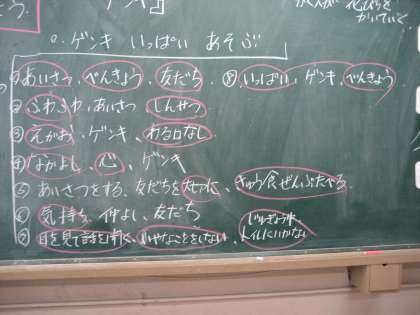 ゲンキ
花びらを
かいていと
0.ゲンキ いっぱい あそぶ
①あいさつ、べんきょう、友だち ⑧いっぱい、ゲンキ、べんきょう
②ふわふわ、あいさつ、しんせつ
③えがお、ゲンキ、わる口なし
④なかよし、心、ゲンキ
⑤あいさつをする、友だちを大切に、きゅう食ぜんぶたべる
⑥気持ち、仲よし、友だち
⑦目を見て話を聞く、いやなことをしない、じゅぎょう中トイレにいかない